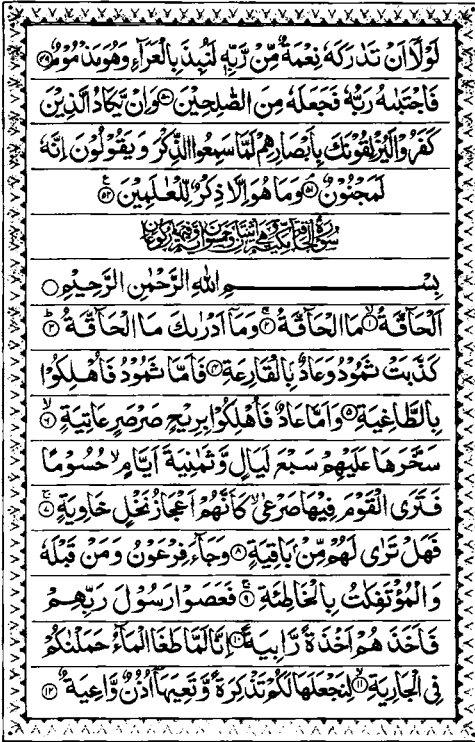 لَوْلَاۤ اَنْ تَدٰرَكَهٗ نِعْمَةٌ مِّنْ رَّبِّهٖ لَنُبِذَ بِالْعَرَآءِ وَهُوَ مَذْمُوْمٌ ۝۴۹
فَاجْتَبٰىهُ رَبُّهٗ فَجَعَلَهٗ مِنَ الصّٰلِحِيْنَ ۝۵۰ وَاِنْ يَّكَادُ الَّذِيْنَ
كَفَرُوْا لَيُزْلِقُوْنَكَ بِاَبْصَارِهِمْ لَمَّا سَمِعُوا الذِّكْرَ وَيَقُوْلُوْنَ اِنَّهٗ
لَمَجْنُوْنٌ ۝۵۱ وَمَا هُوَ اِلَّا ذِكْرٌ لِّلْعٰلَمِيْنَ ۝۵۲
بِسْمِ اللّٰهِ الرَّحْمٰنِ الرَّحِيْمِ ۝
اَلْحَآقَّةُ ۝۱ مَا الْحَآقَّةُ ۝۲ وَمَاۤ اَدْرٰىكَ مَا الْحَآقَّةُ ۝۳
كَذَّبَتْ ثَمُوْدُ وَعَادٌۢ بِالْقَارِعَةِ ۝۴ فَاَمَّا ثَمُوْدُ فَاُهْلِكُوْا
بِالطَّاغِيَةِ ۝۵ وَاَمَّا عَادٌ فَاُهْلِكُوْا بِرِيْحٍ صَرْصَرٍ عَاتِيَةٍ ۝۶
سَخَّرَهَا عَلَيْهِمْ سَبْعَ لَيَالٍ وَّثَمٰنِيَةَ اَيَّامٍ حُسُوْمًا
فَتَرَى الْقَوْمَ فِيْهَا صَرْعٰى كَاَنَّهُمْ اَعْجَازُ نَخْلٍ خَاوِيَةٍ ۝۷
فَهَلْ تَرٰى لَهُمْ مِّنْۢ بَاقِيَةٍ ۝۸ وَجَآءَ فِرْعَوْنُ وَمَنْ قَبْلَهٗ
وَالْمُؤْتَفِكٰتُ بِالْخَاطِئَةِ ۝۹ فَعَصَوْا رَسُوْلَ رَبِّهِمْ
فَاَخَذَهُمْ اَخْذَةً رَّابِيَةً ۝۱۰ اِنَّا لَمَّا طَغَا الْمَآءُ حَمَلْنٰكُمْ
فِى الْجَارِيَةِ ۝۱۱ لِنَجْعَلَهَا لَكُمْ تَذْكِرَةً وَّتَعِيَهَاۤ اُذُنٌ وَّاعِيَةٌ ۝۱۲